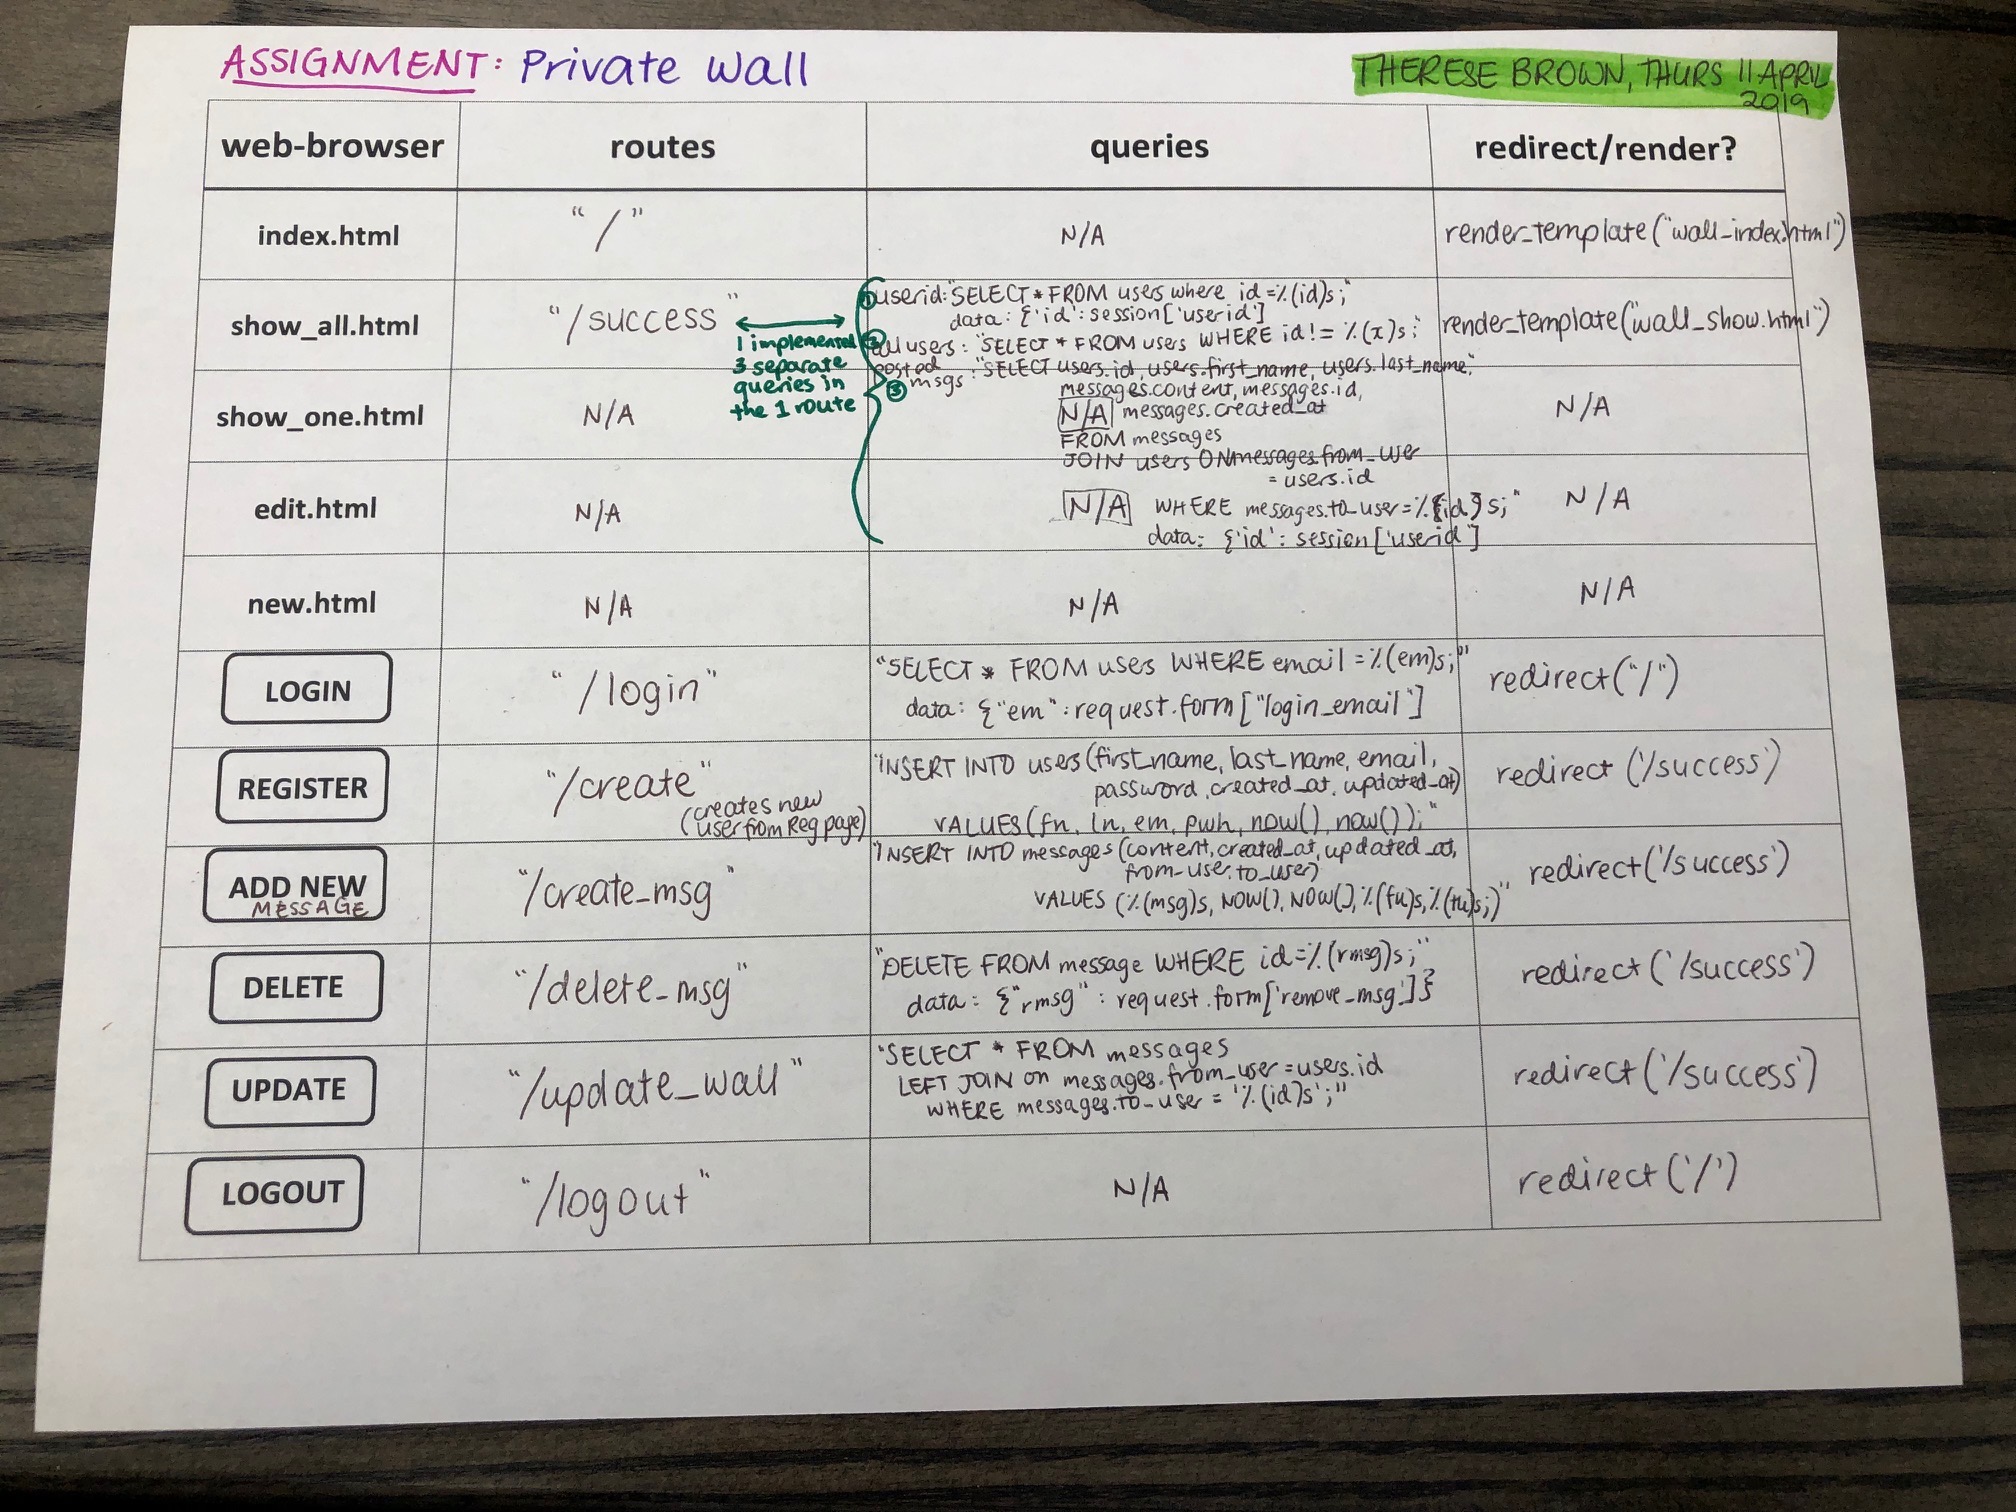 ASSIGNMENT: Private Wall
THERESE BROWN, THURS 11 APRIL
2019
web-browser
routes
queries
redirect/render?
index.html
"/"
N/A
render_template("wall_index.html")
show_all.html
"/success"
1 implemented
3 separate
queries in
the 1 route
① userid: "SELECT * FROM users where id =%(id)s;"
data: {'id': session['userid']
② all users: "SELECT * FROM users WHERE id != %(x)s;"
③ posted
msgs : "SELECT users.id, users.first_name, users.last_name,
messages.content, messages.id,
messages.created_at
FROM messages
JOIN users ON messages.from_user
= users.id
WHERE messages.to_user = %{id}s;"
data: {'id': session['userid']
render_template("wall_show.html")
show_one.html
N/A
N/A
N/A
edit.html
N/A
N/A
N/A
new.html
N/A
N/A
N/A
LOGIN
"/login"
"SELECT * FROM users WHERE email = %(em)s;"
data: {"em": request.form["login_email"]
redirect("/")
REGISTER
"/create"
(creates new
user from Reg page)
"INSERT INTO users (first_name, last_name, email,
password, created_at, updated_at)
VALUES (fn, ln, em, pwh, now(), now());"
redirect('/success')
ADD NEW
MESSAGE
"/create_msg"
"INSERT INTO messages (content, created_at, updated_at,
from_user, to_user)
VALUES (%(msg)s, NOW(), NOW(), %(fu)s, %(tu)s;)"
redirect('/success')
DELETE
"/delete_msg"
"DELETE FROM message WHERE id=%(rmsg)s;"
data: {"rmsg": request.form['remove_msg']}
redirect('/success')
UPDATE
"/update_wall"
"SELECT * FROM messages
LEFT JOIN on messages.from_user = users.id
WHERE messages.to_user = '%(id)s';"
redirect('/success')
LOGOUT
"/logout"
N/A
redirect('/')